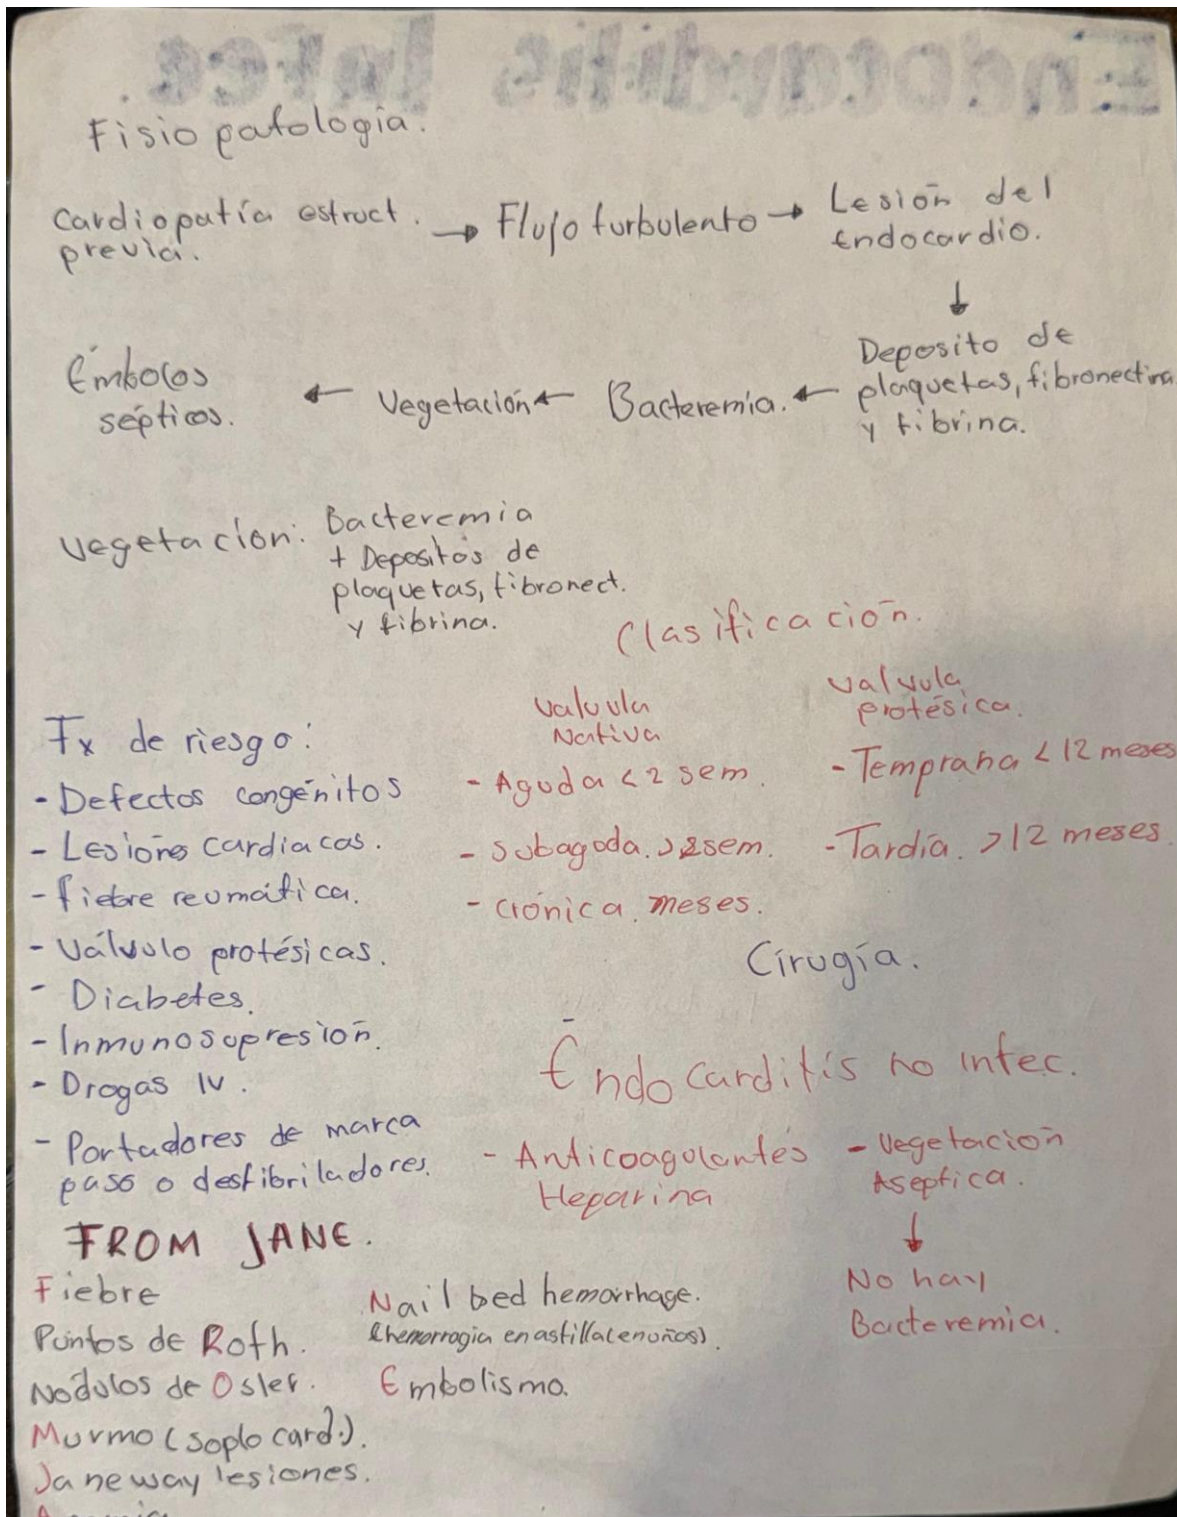 Fisiopatologia.
Cardiopatía estruct.
previa.
→ Flujo turbulento →
Lesión del
Endocardio.
↓
Deposito de
plaquetas, fibronectina
y fibrina.
← Bacteremia.
← Vegetación
←
Émbolos
sépticos.
Vegetación:
Bacteremia
+ Depositos de
plaquetas, fibronect.
y fibrina.
Fx de riesgo:
- Defectos congénitos
- Lesiones cardiacas.
- fiebre reumática.
- Válvulo protésicas.
- Diabetes.
- Inmunosupresión.
- Drogas IV.
- Portadores de marca
paso o desfibriladores.
Clasificación.
valvula
Nativa
- Aguda < 2 sem.
- Subaguda. > 2 sem.
- Crónica. meses.
valvula
protésica.
- Temprana < 12 meses
- Tardía. > 12 meses.
Cirugía.
Endocarditis no infec.
- Anticoagulantes
Heparina
- Vegetación
Aseptica.
↓
No hay
Bacteremia.
FROM JANE.
Fiebre
Puntos de Roth.
Nodulos de Osler.
Murmo (soplo card.).
Janeway lesiones.
Anemia
Nail bed hemorrhage.
(hemorragia en astilla(en uñas).
Embolismo.